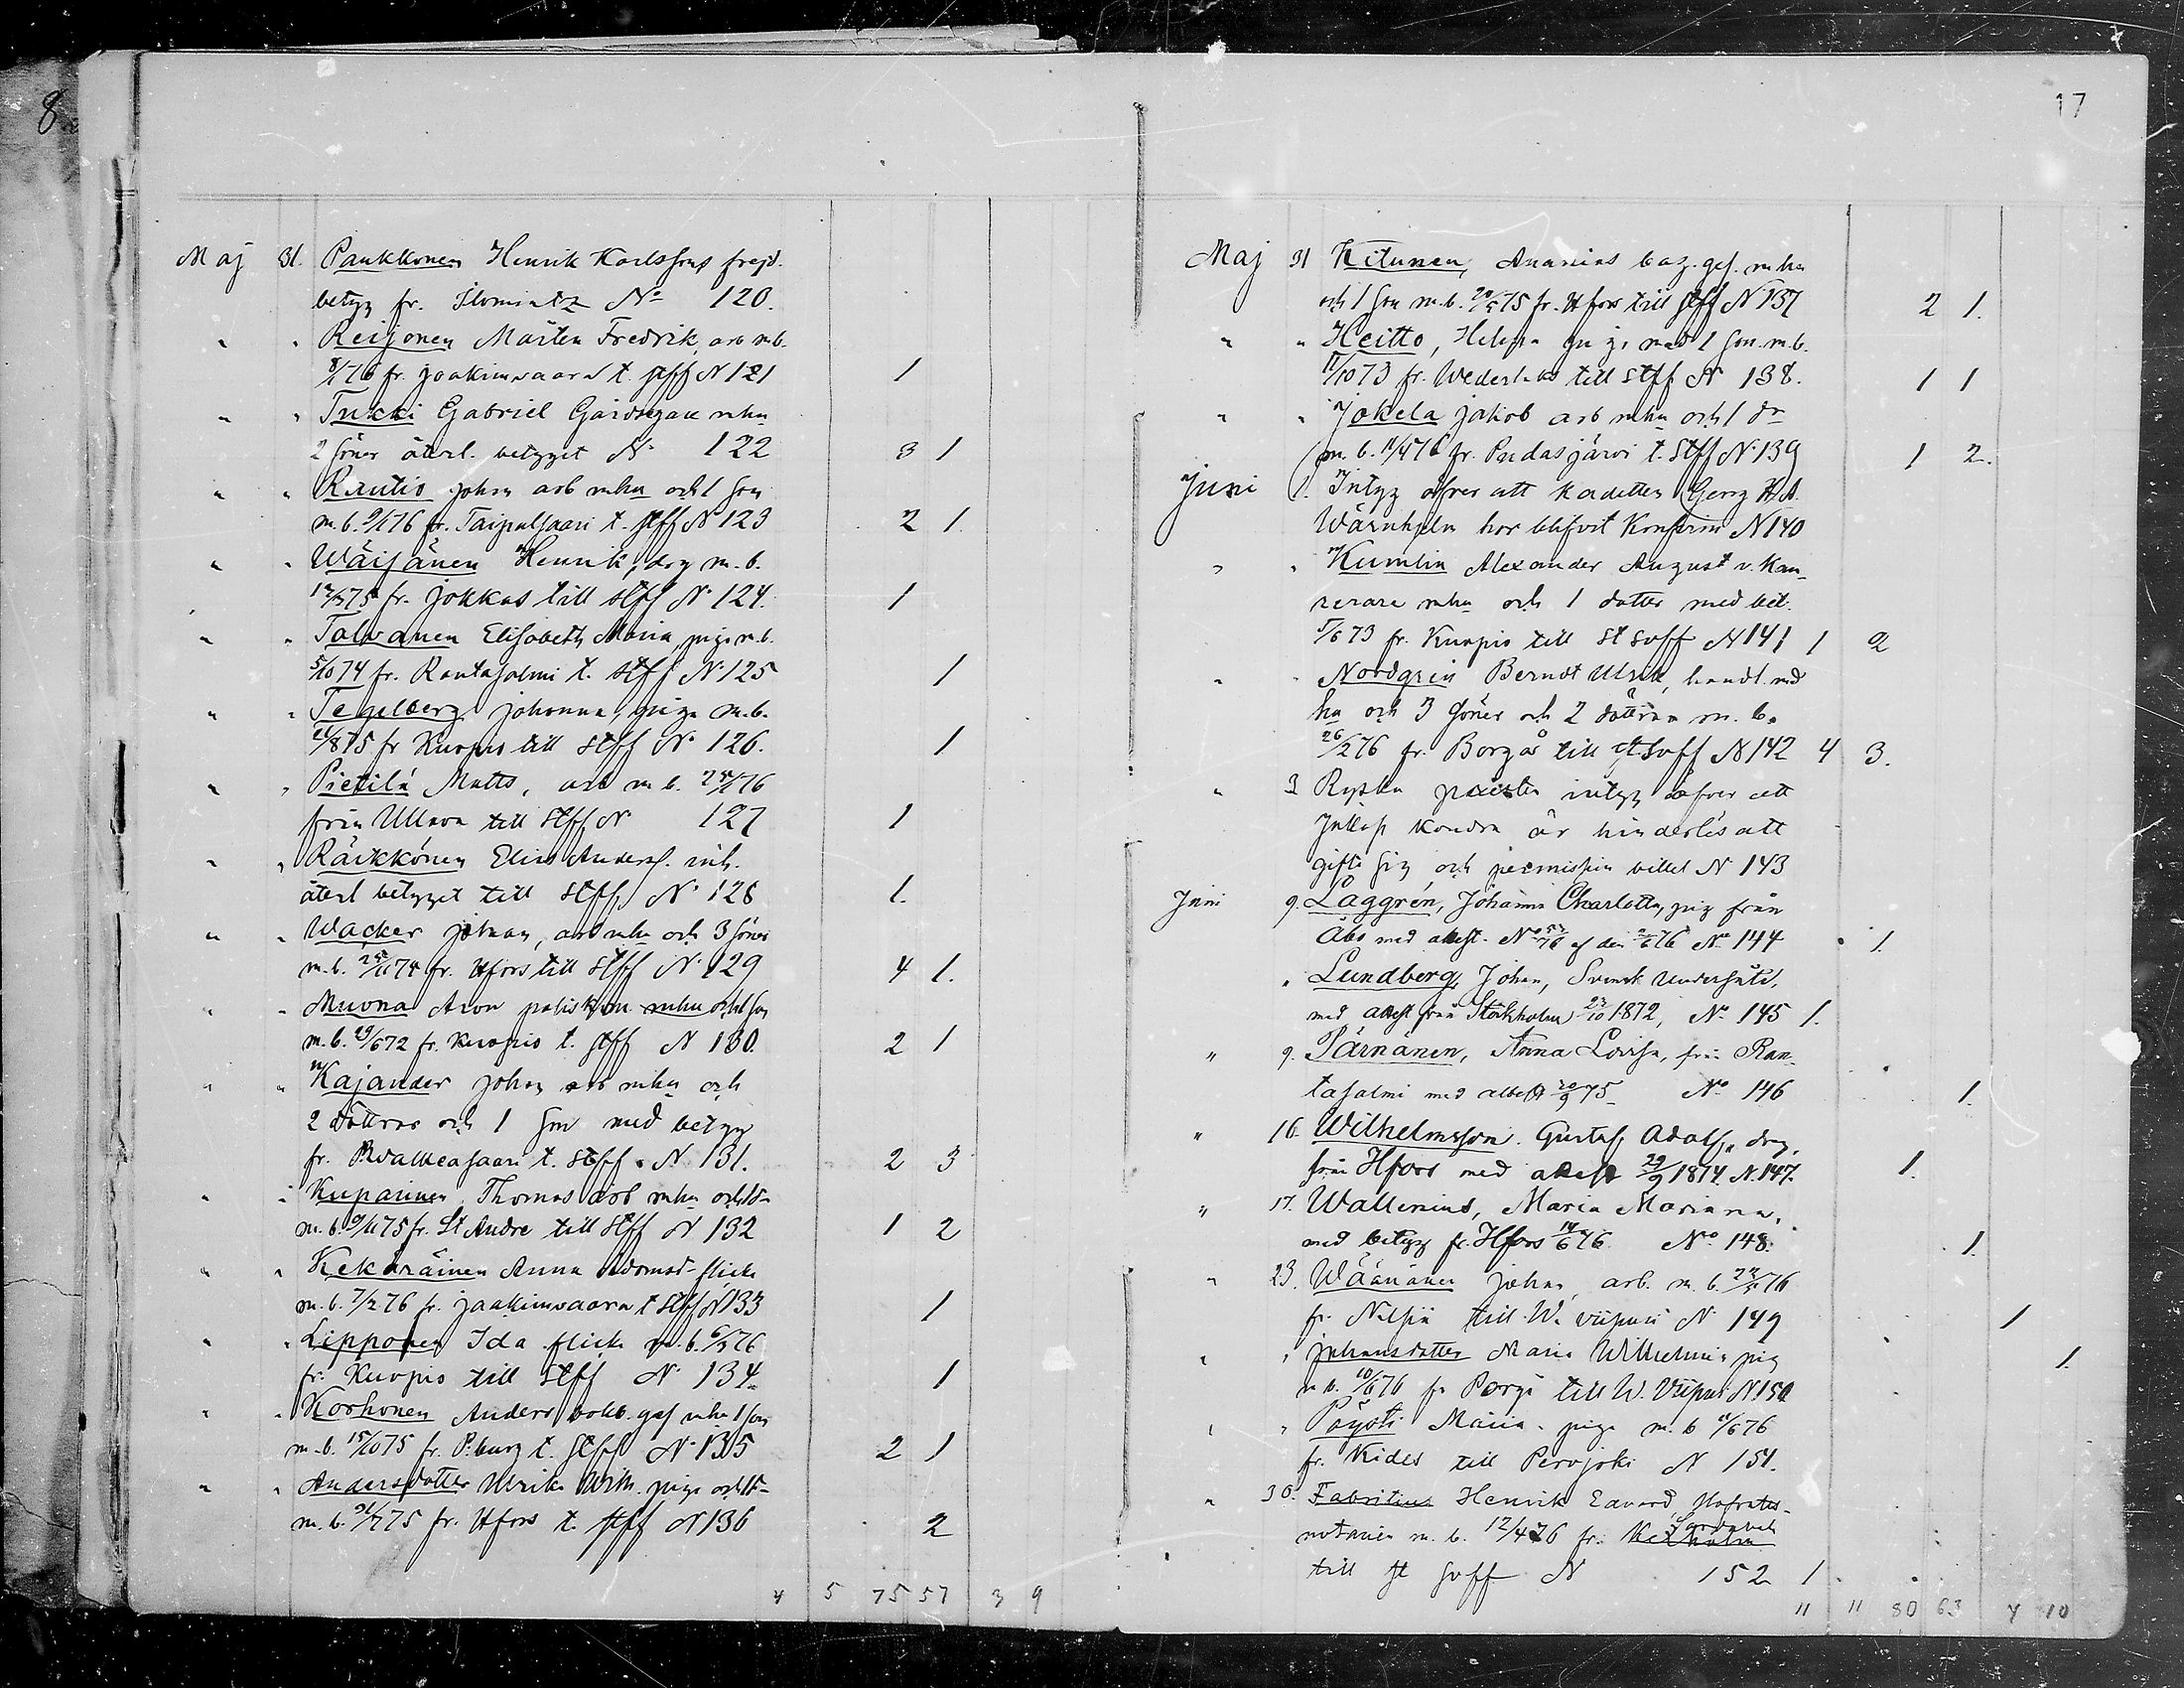 8
17
Maj 31. Paukkonen Henrik Karlssons frejd.
betyg fr. Ilomintz No 120.
" " Reijonen Mårten Fredrik, arb m.b.
fr. Joakimvaara t. stff N 121 1
" " Tukki Gabriel Gårdsegare mhu
2 söner återl. betyget N. 122 3 1
" " Rautio Johan arb mhu och 1 son
m.b. fr. Taipalsaari t. stff N 123 2 1
" " Wäisänen Henrik, drg m.b.
fr. Jokkas till stff N. 124. 1
" " Talvanen Elisabeth Maria, piga m.b.
5/10 74 fr. Rantasalmi t. stff N. 125 1
" " Tegelberg Johanna, piga m.b.
fr Kuopio till stff N. 126. 1
" " Pietilä Matts, arb m.b.
från Ullava till stff N 127 1
" " Räikkönen Elias Anderss. inh.
återl betyget till stff N. 128 1.
" " Wacker Johan, arb mhu och 3 söner
m.b. fr. Hfors till stff N. 129 4 1.
" " Muona Aron poliskon. mhu och 1 son
m.b. fr. Kuopio t. stff N 130. 2 1
" " Kajander Johan arb mhu och
2 döttrar och 1 son med betyg
fr. Walkeasaari t. stff N. 131. 2 3
" " Kuparinen Thomas arb mhu och 1 dr
m.b. fr. St Andre till stff N 132 1 2
" " Kekäräinen Anna Adamsd. flicka
m.b. 7/2 76 fr. Jaakimvaara t stff N 133 1
" " Lipponen Ida flicka m.b. 6/5 76
fr. Kuopio till stff N. 134. 1
" " Korhonen Anders bokb. gesl mhu 1 son
m.b. 15/10 75 fr. P.burg t. stff N. 135 2 1
" " Andersdotter Ulrika Wilh. piga och 1 dr
m.b. fr. Hfors t. stff N 136 2
4 5 75 57 3 9
Maj 31 Kitunen, Ananias bag. ges. mhu
och 1 son m.b. fr. Hfors till stff N 137 2 1.
" " Heitto, Helena piga med 1 son m.b.
11/10 73 fr. Wederlaks till stff N 138. 1 1
" " Jokela Jakob arb mhu och 1 dr
m.b. fr. Pudasjärvi t. stff N. 139 1 2.
Juni 1. Intyg öfver att kadetten Georg K.A.
Wärnhjelm har blifvit Konfirm N 140
" " Kumlin Alexander August v. Kam-
rerare mhu och 1 dotter med bet.
5/6 73 fr. Kuopio till St suff N 141 1 2
" " Nordgren Berndt Ulrik, handl. med
hu och 3 söner och 2 döttrar m.b.
26/2 76 fr. Borgå till st. suff N 142 4 3.
" 3 Ryska prästens intyg öfver att
kondra är hinderlös att
gifta sig och permission billet N 143
Juni 9. Laggrén, Johanna Charlotta, pig från
Åbo med attest. N af den No 144 1.
" Lundberg, Johan, Svensk undersåte,
med attest från Stockholm 23/10 1872, No 145 1.
" 9. Pärnänen, Anna Lovisa, från Ran-
tasalmi med attest 20/9 75 No 146 1.
" 16. Wilhelmsson. Gustaf Adolf, drg,
från Hfors med attest 29/9 1874 N. 147. 1.
" 17. Wallenius, Maria Mariana,
med betyg fr. Hfors 14/6 76 No 148. 1.
" 23. Väänänen Johan, arb. m.b.
fr. Nilsiä till W. Viipuri N 149 1
" " Johansdotter Maria Wilhelmina pig
m b. 10/6 76 fr Borgå till W. Viipuri N 150 1.
" " Pöysti Maria. piga m.b
fr. Kides till Perojoki N 151.
" 30. Fabritius Henrik Edvard Hofrätts-
notarien m.b. 12/4 76 fr. Kexholm Sordavala
till St suff N 152 1
11 11 80 63 4 10